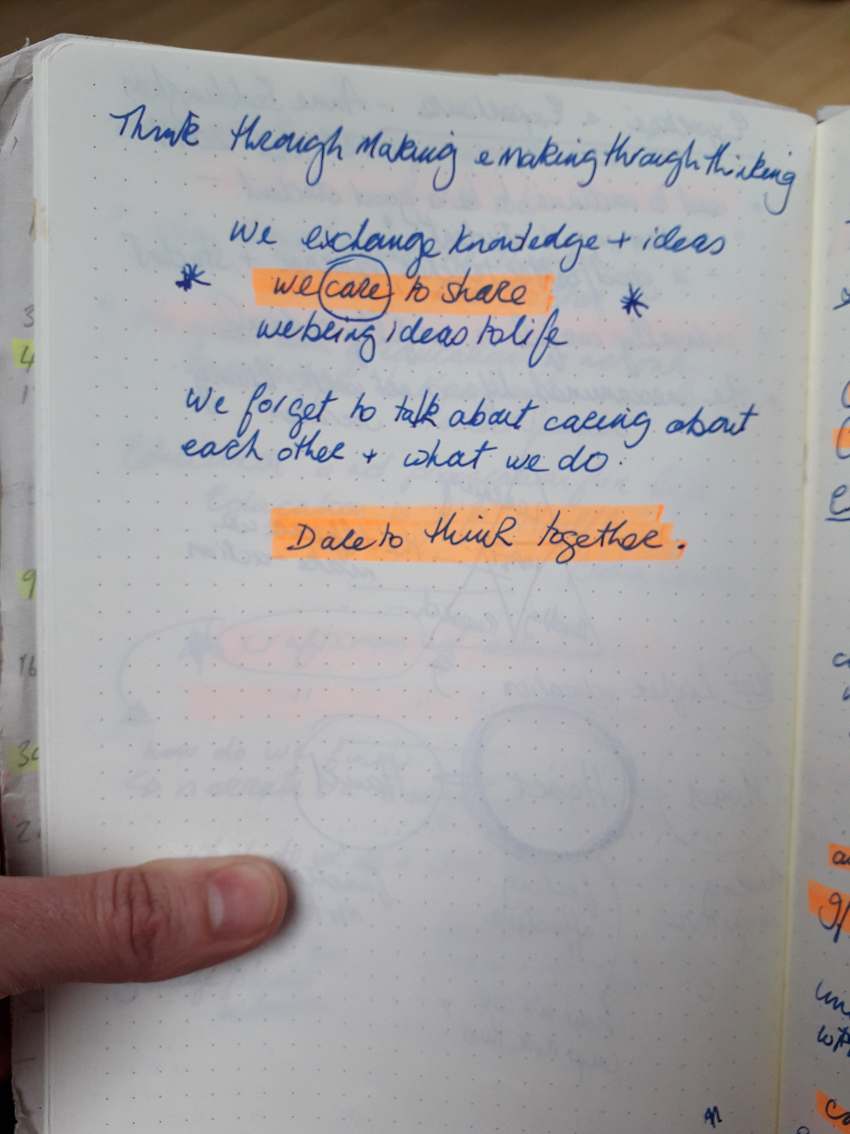 Think through making & making through thinking
we exchange knowledge + ideas
* we care to share *
we bring ideas to life
we forget to talk about caring about
each other + what we do.
Dare to think together.